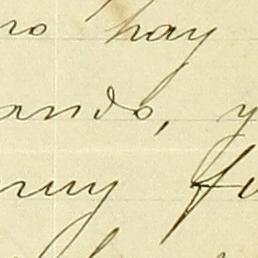 no hay
ando, y
muy fu